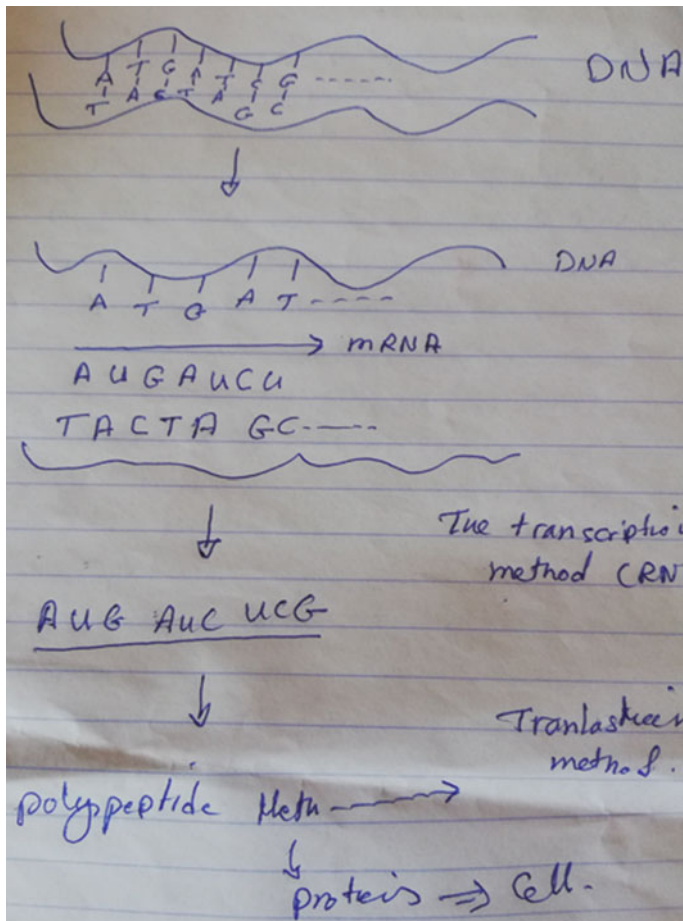 A T G A T C G ------
DNA
T A C T A G C
DNA
A T G A T -----
mRNA
A U G A U C U
T A C T A G C -----
The transcriptio
method (RN
AUG AUC UCG
Tranlastion
method.
polyppeptide Meth
proteis ⇒ Cell.